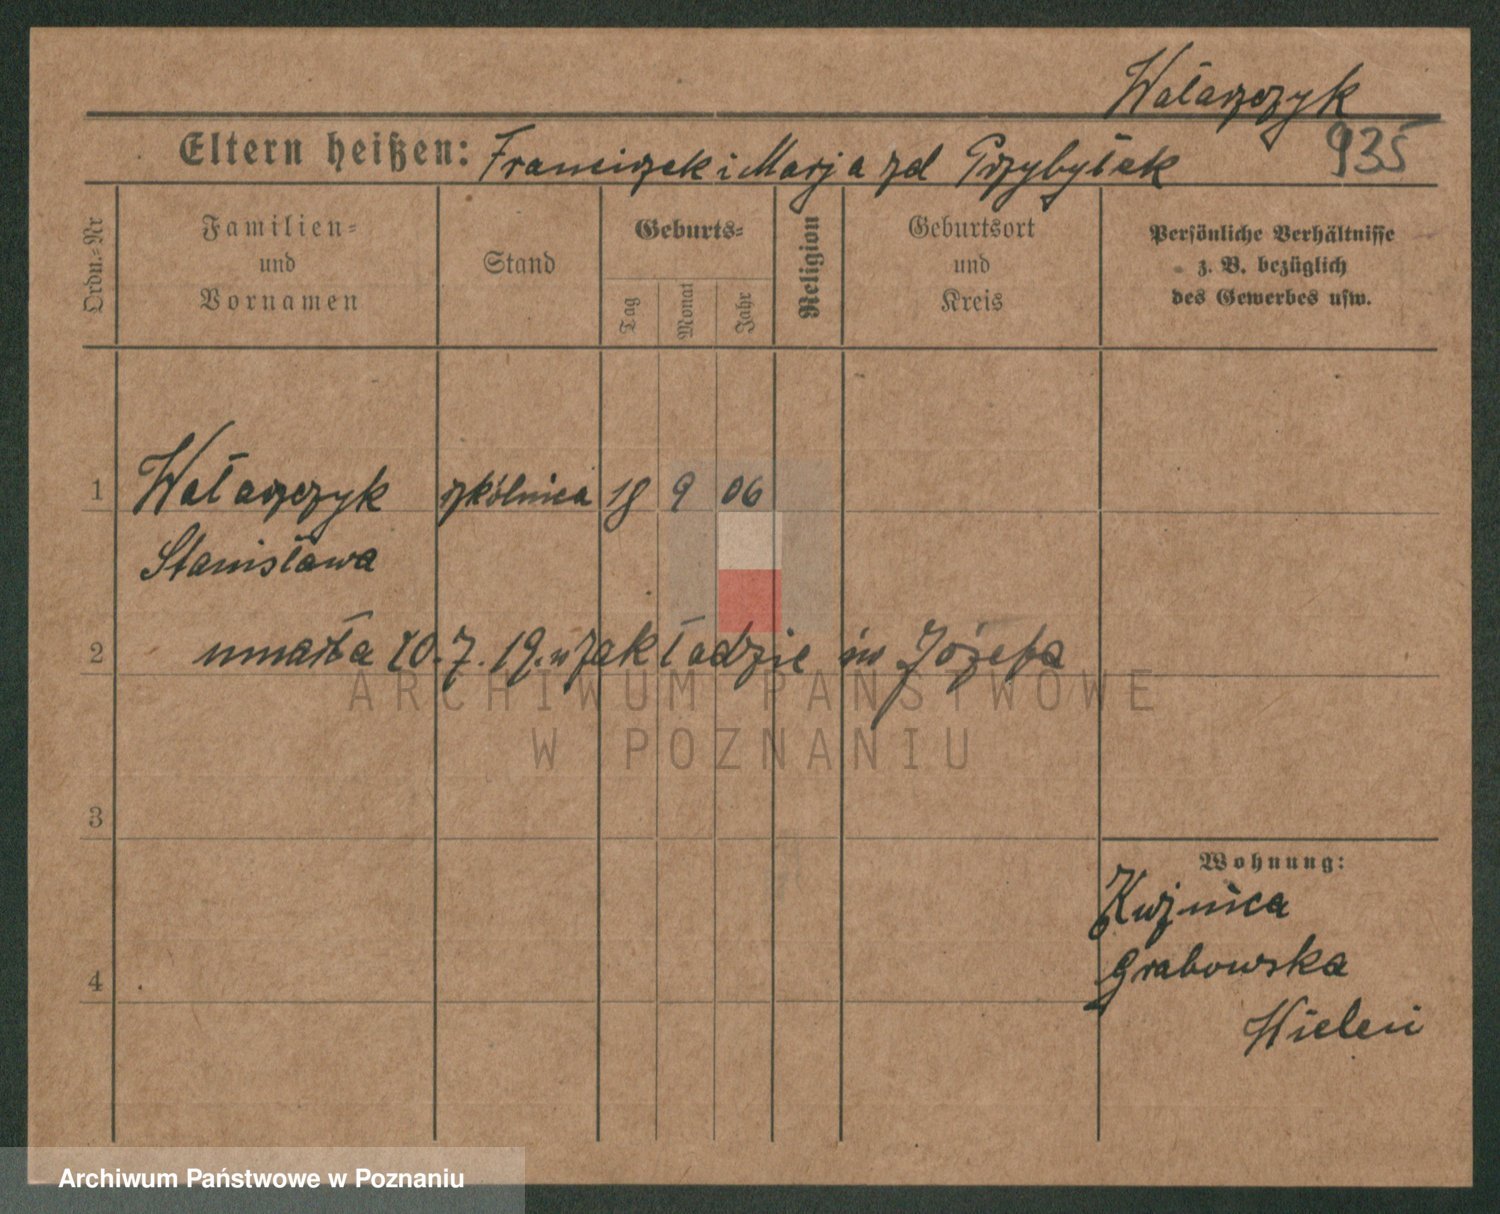 Wałaszczyk
935
Eltern heißen: Franciszek i Marja zd Przybyłek
Ordn.-Nr
Familien-
und
Vornamen
Stand
Geburts-
Tag
Monat
Jahr
Religion
Geburtsort
und
Kreis
Persönliche Verhältnisse
z. B. bezüglich
des Gewerbes usw.
1 Wałaszczyk szkólnica 18 9 06
Stanisława
2 umarła 20. 7. 19. w zakładzie św Józefa
ARCHIWUM PAŃSTWOWE
W POZNANIU
3
Wohnung:
Kuźnica
Grabowska
4
Wieleń
Archiwum Państwowe w Poznaniu